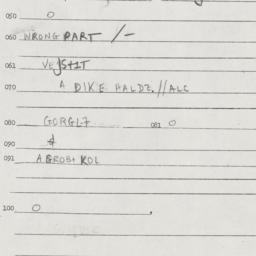 050 O
060 WRONG PART /-
061
070 A DIKE HALDZ.//ALC
080 GORGL7 081 O
090 &
091 AGROB+ KOL
100 O